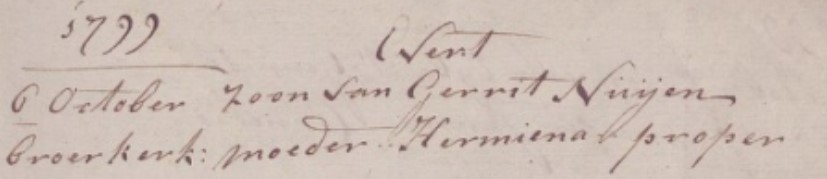 1799
Evert
6 October zoon van Gerrit Nuijen
broerkerk: moeder Hermiena proper